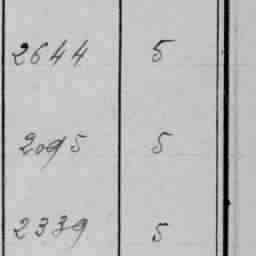 2644 5
2095 5
2339 5